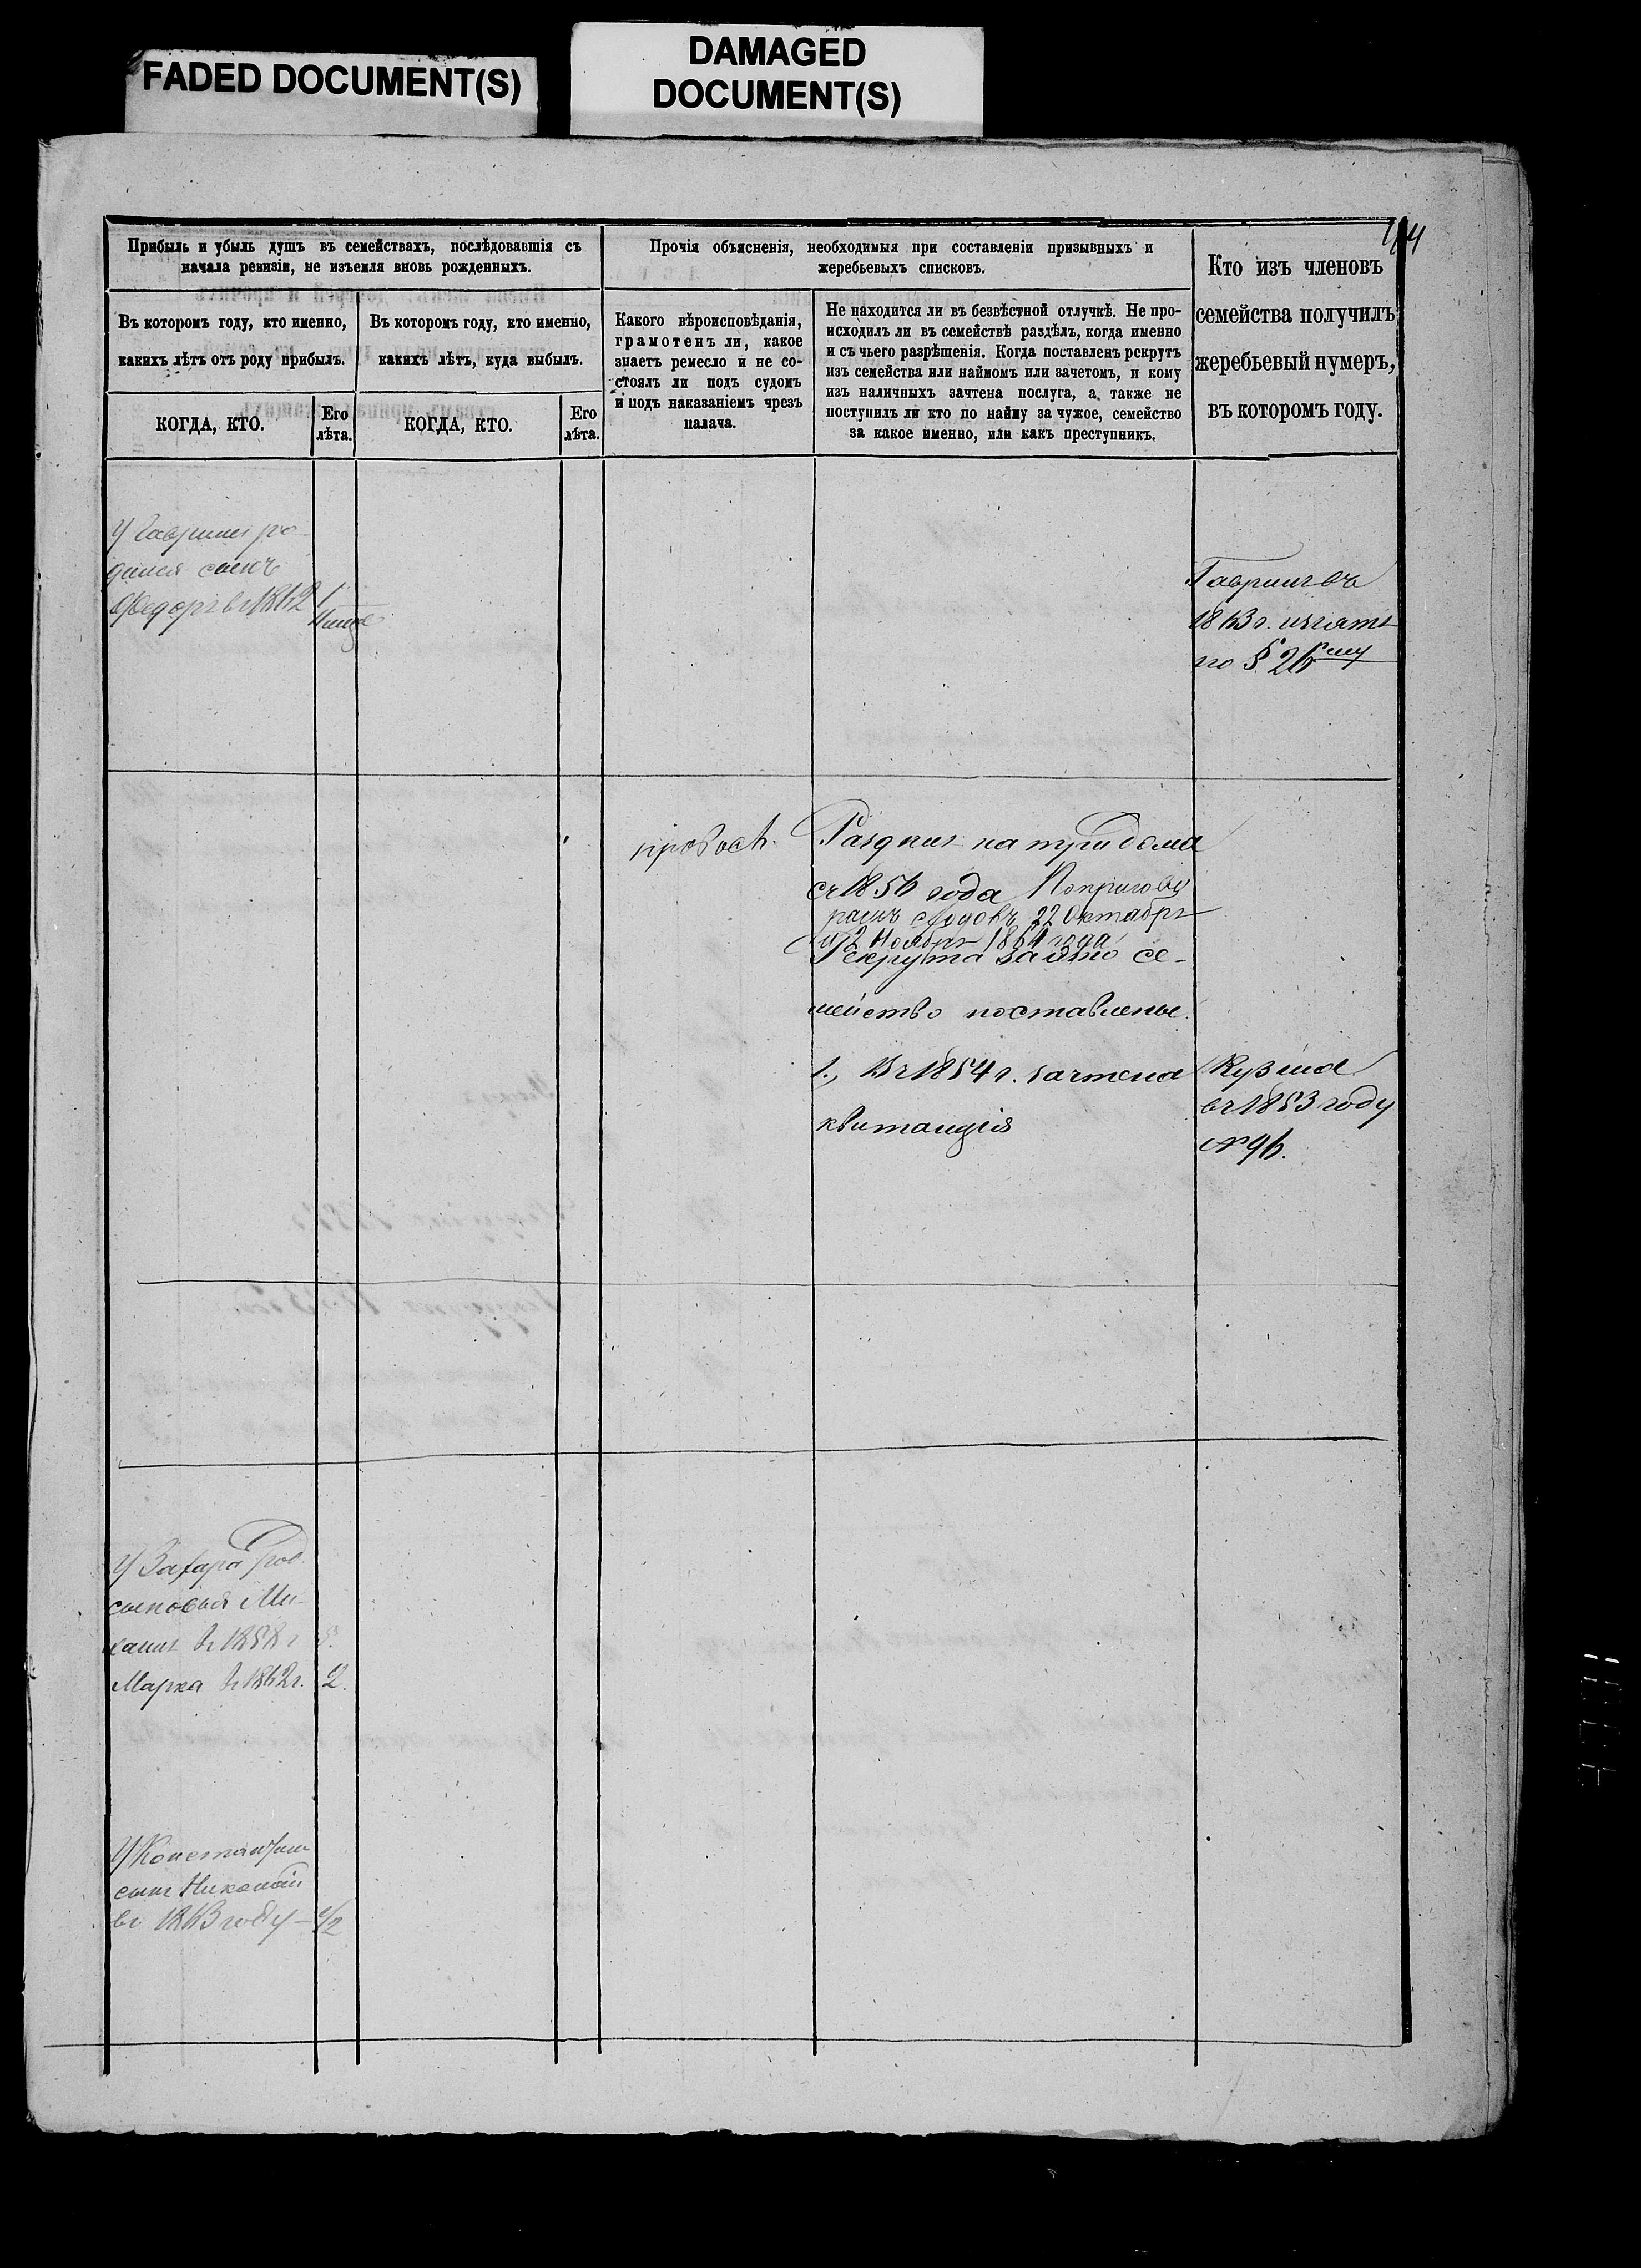 FADED DOCUMENT(S)
DAMAGED
DOCUMENT(S)
Прибыль и убыль душъ въ семействахъ, послѣдовавшія съ
начала ревизіи, не изъемля вновь рожденныхъ.
Въ которомъ году, кто именно,
какихъ лѣтъ отъ роду прибылъ.
КОГДА, КТО.
Его
лѣта.
Въ которомъ году, кто именно,
какихъ лѣтъ, куда выбылъ.
КОГДА, КТО.
Его
лѣта.
Прочія объясненія, необходимыя при составленіи призывныхъ и
жеребьевыхъ списковъ.
Какого вѣроисповѣданія,
грамотенъ ли, какое
знаетъ ремесло и не со-
стоялъ ли подъ судомъ
и подъ наказаніемъ чрезъ
палача.
Не находится ли въ безвѣстной отлучкѣ. Не про-
исходилъ ли въ семействѣ раздѣлъ, когда именно
и съ чьего разрѣшенія. Когда поставленъ рекрутъ
изъ семейства или наймомъ или зачетомъ, и кому
изъ наличныхъ зачтена послуга, а также не
поступилъ ли кто по найму за чужое, семейство
за какое именно, или какъ преступникъ.
Кто изъ членовъ
семейства получилъ
жеребьевый нумеръ,
въ которомъ году.
У Гаврилы ро-
дился сынъ
Ѳедоръ въ 1862
1
Гаврилъ въ
1863 г. изъятъ
по § 26
правосл.
на три дома
съ 1856 года
22 Октября
и 2 Ноября 1864 года
Рекрута за это се-
мейство поставлено.
1., Въ 1854 г. зачтена
квитанція
Кузьма
въ 1853 году
№ 96.
У Захара род.
сыновья Ми-
хаилъ въ 1858 г 5.
Марка въ 1862 г. 2.
У Константина
сынъ Николай
въ 1863 году — 1/2